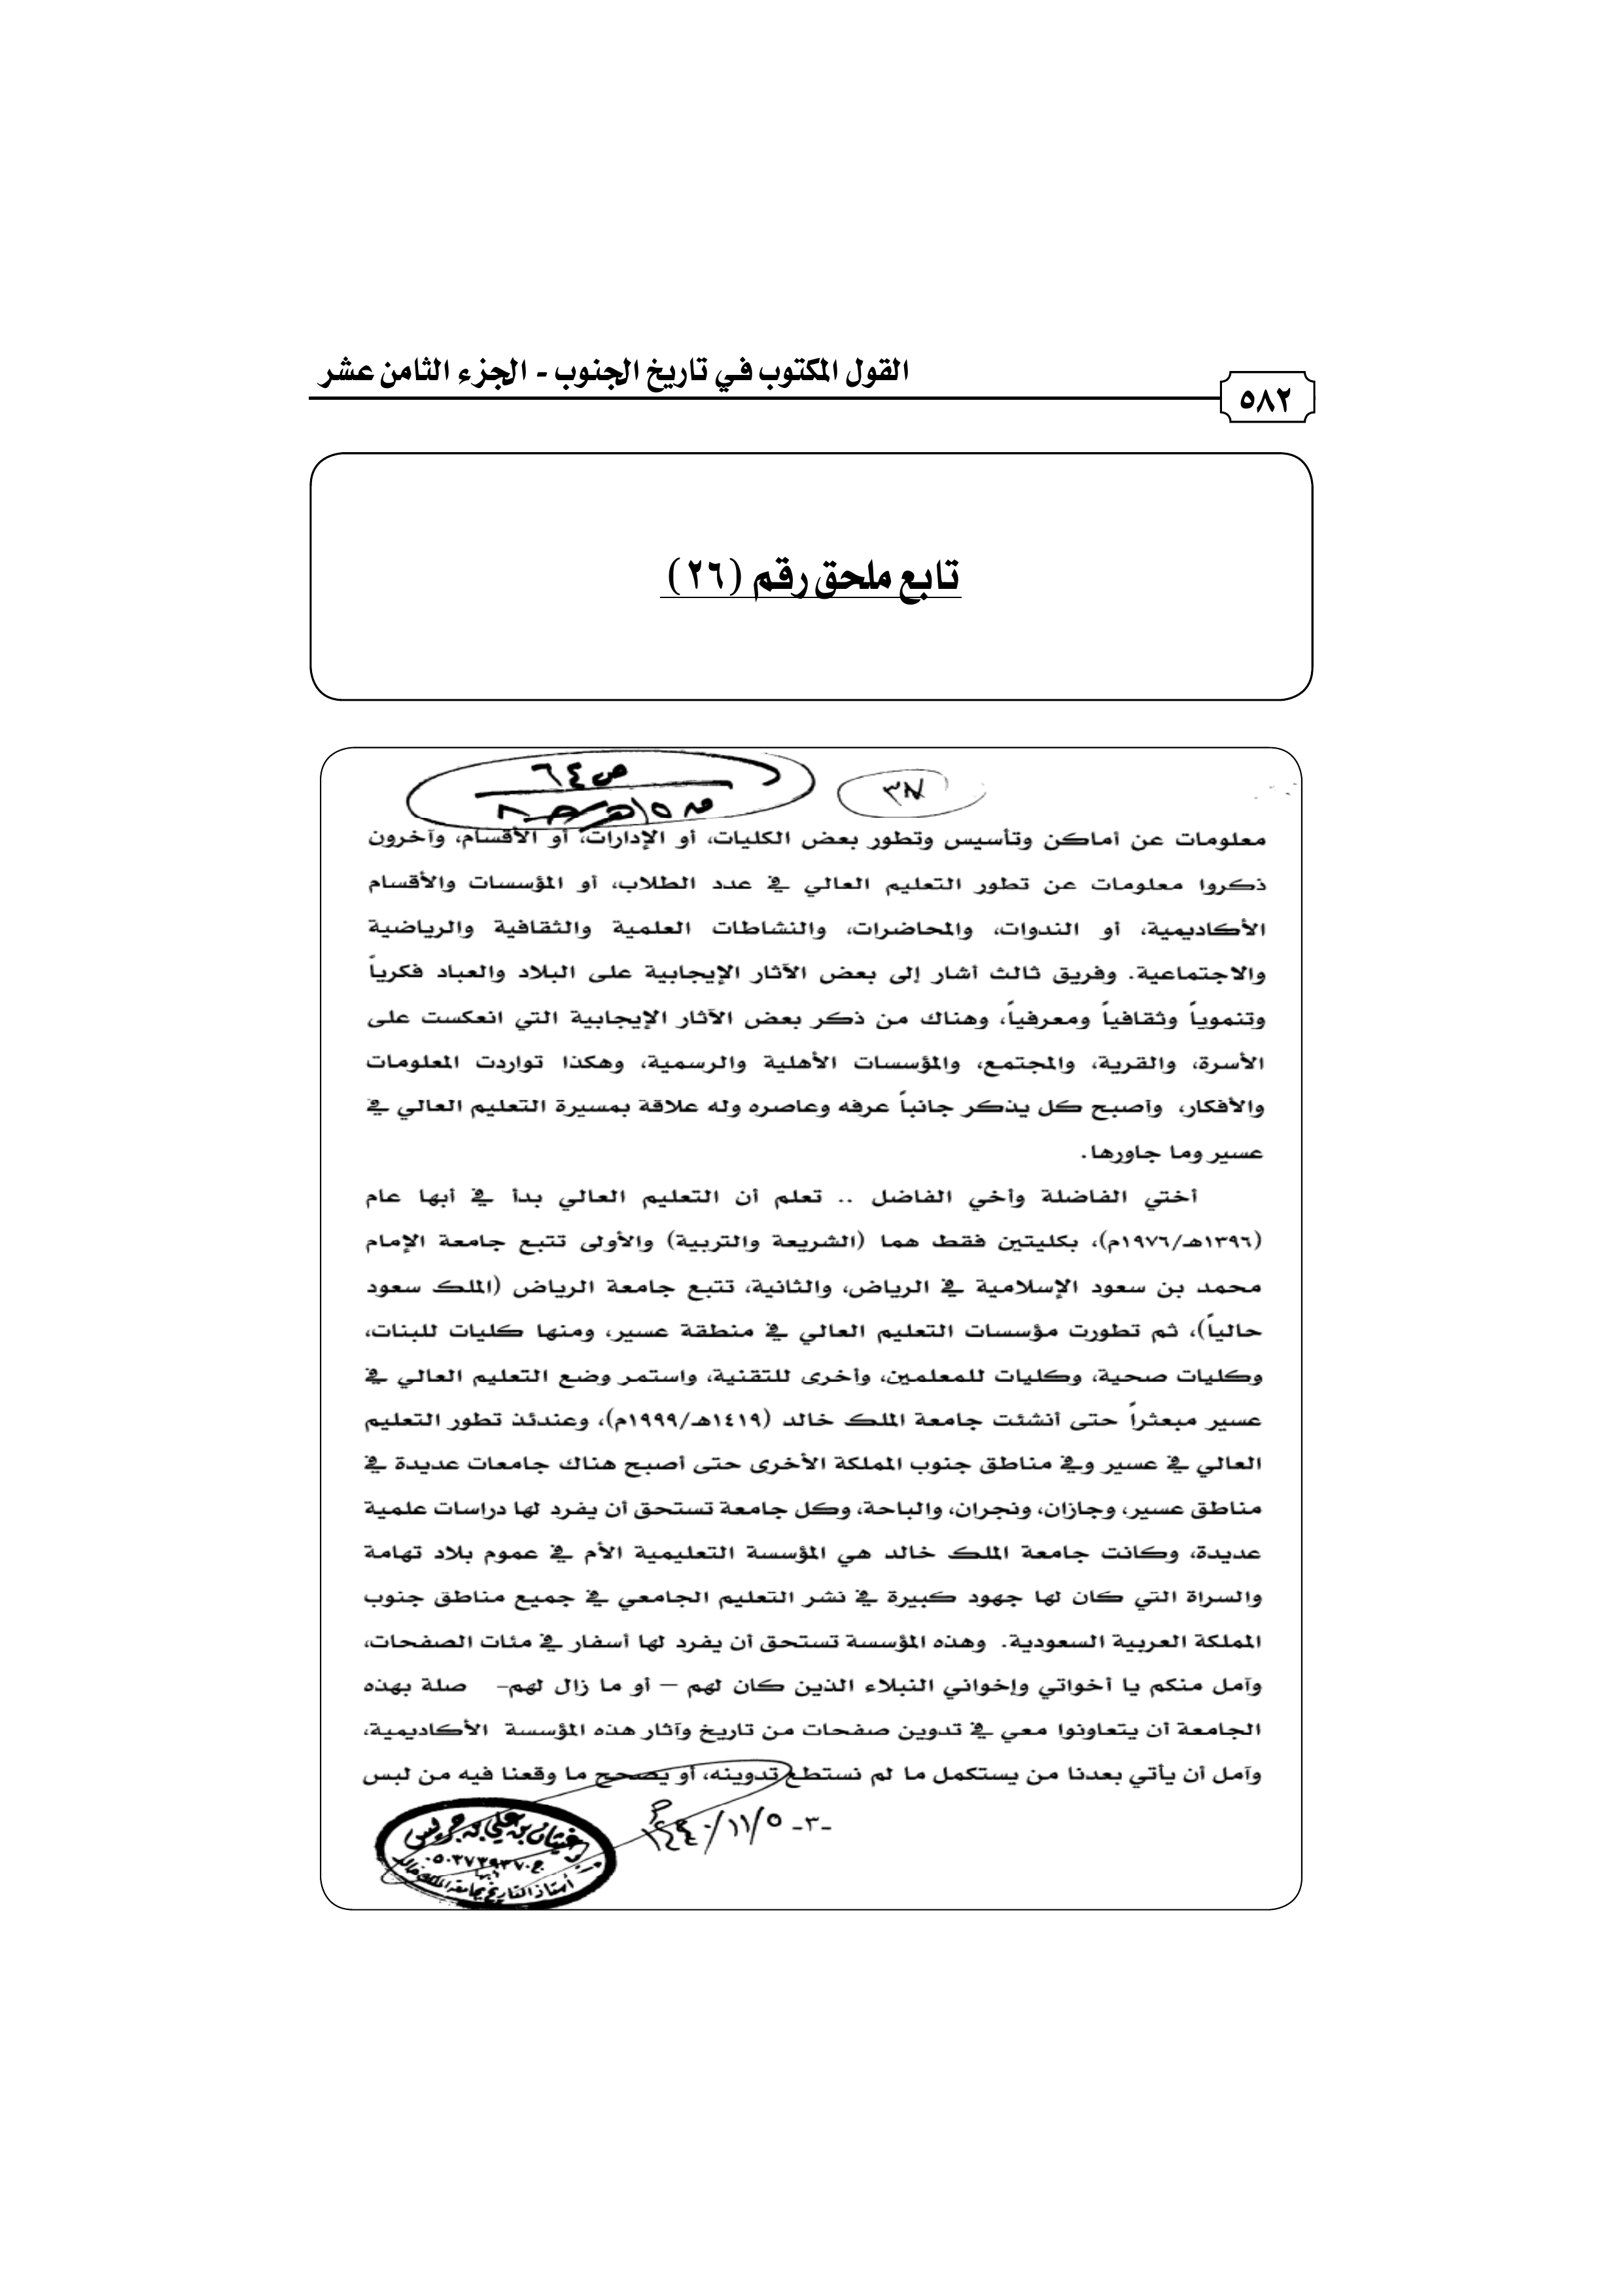 القول المكتوب في تاريخ الجنوب - الجزء الثامن عشر
٥٨٢
تابع ملحق رقم (٢٦)
ص٤٦
معلومات عن أماكن وتأسيس وتطور بعض الكليات، أو الإدارات، أو الأقسام، وآخرون
ذكروا معلومات عن تطور التعليم العالي في عدد الطلاب، أو المؤسسات والأقسام
الأكاديمية، أو الندوات، والمحاضرات، والنشاطات العلمية والثقافية والرياضية
والاجتماعية. وفريق ثالث أشار إلى بعض الآثار الإيجابية على البلاد والعباد فكرياً
وتنموياً وثقافياً ومعرفياً، وهناك من ذكر بعض الآثار الإيجابية التي انعكست على
الأسرة، والقرية، والمجتمع، والمؤسسات الأهلية والرسمية، وهكذا تواردت المعلومات
والأفكار، وأصبح كل يذكر جانباً عرفه وعاصره وله علاقة بمسيرة التعليم العالي في
عسير وما جاورها.
أختي الفاضلة وأخي الفاضل .. تعلم أن التعليم العالي بدأ في أبها عام
(١٣٩٦هـ/١٩٧٦م)، بكليتين فقط هما (الشريعة والتربية) والأولى تتبع جامعة الإمام
محمد بن سعود الإسلامية في الرياض، والثانية، تتبع جامعة الرياض (الملك سعود
حالياً)، ثم تطورت مؤسسات التعليم العالي في منطقة عسير، ومنها كليات للبنات،
وكليات صحية، وكليات للمعلمين، وأخرى للتقنية، واستمر وضع التعليم العالي في
عسير مبعثراً حتى أنشئت جامعة الملك خالد (١٤١٩هـ/١٩٩٩م)، وعندئذ تطور التعليم
العالي في عسير وفي مناطق جنوب المملكة الأخرى حتى أصبح هناك جامعات عديدة في
مناطق عسير، وجازان، ونجران، والباحة، وكل جامعة تستحق أن يفرد لها دراسات علمية
عديدة، وكانت جامعة الملك خالد هي المؤسسة التعليمية الأم في عموم بلاد تهامة
والسراة التي كان لها جهود كبيرة في نشر التعليم الجامعي في جميع مناطق جنوب
المملكة العربية السعودية. وهذه المؤسسة تستحق أن يفرد لها أسفار في مئات الصفحات،
وآمل منكم يا أخواتي وإخواني النبلاء الذين كان لهم – أو ما زال لهم- صلة بهذه
الجامعة أن يتعاونوا معي في تدوين صفحات من تاريخ وآثار هذه المؤسسة الأكاديمية،
وآمل أن يأتي بعدنا من يستكمل ما لم نستطع تدوينه، أو يصحح ما وقعنا فيه من لبس
-٣- ٥/١١/١٤٤٠
غيثان بن علي بن جريس
أستاذ التاريخ بجامعة الملك خالد